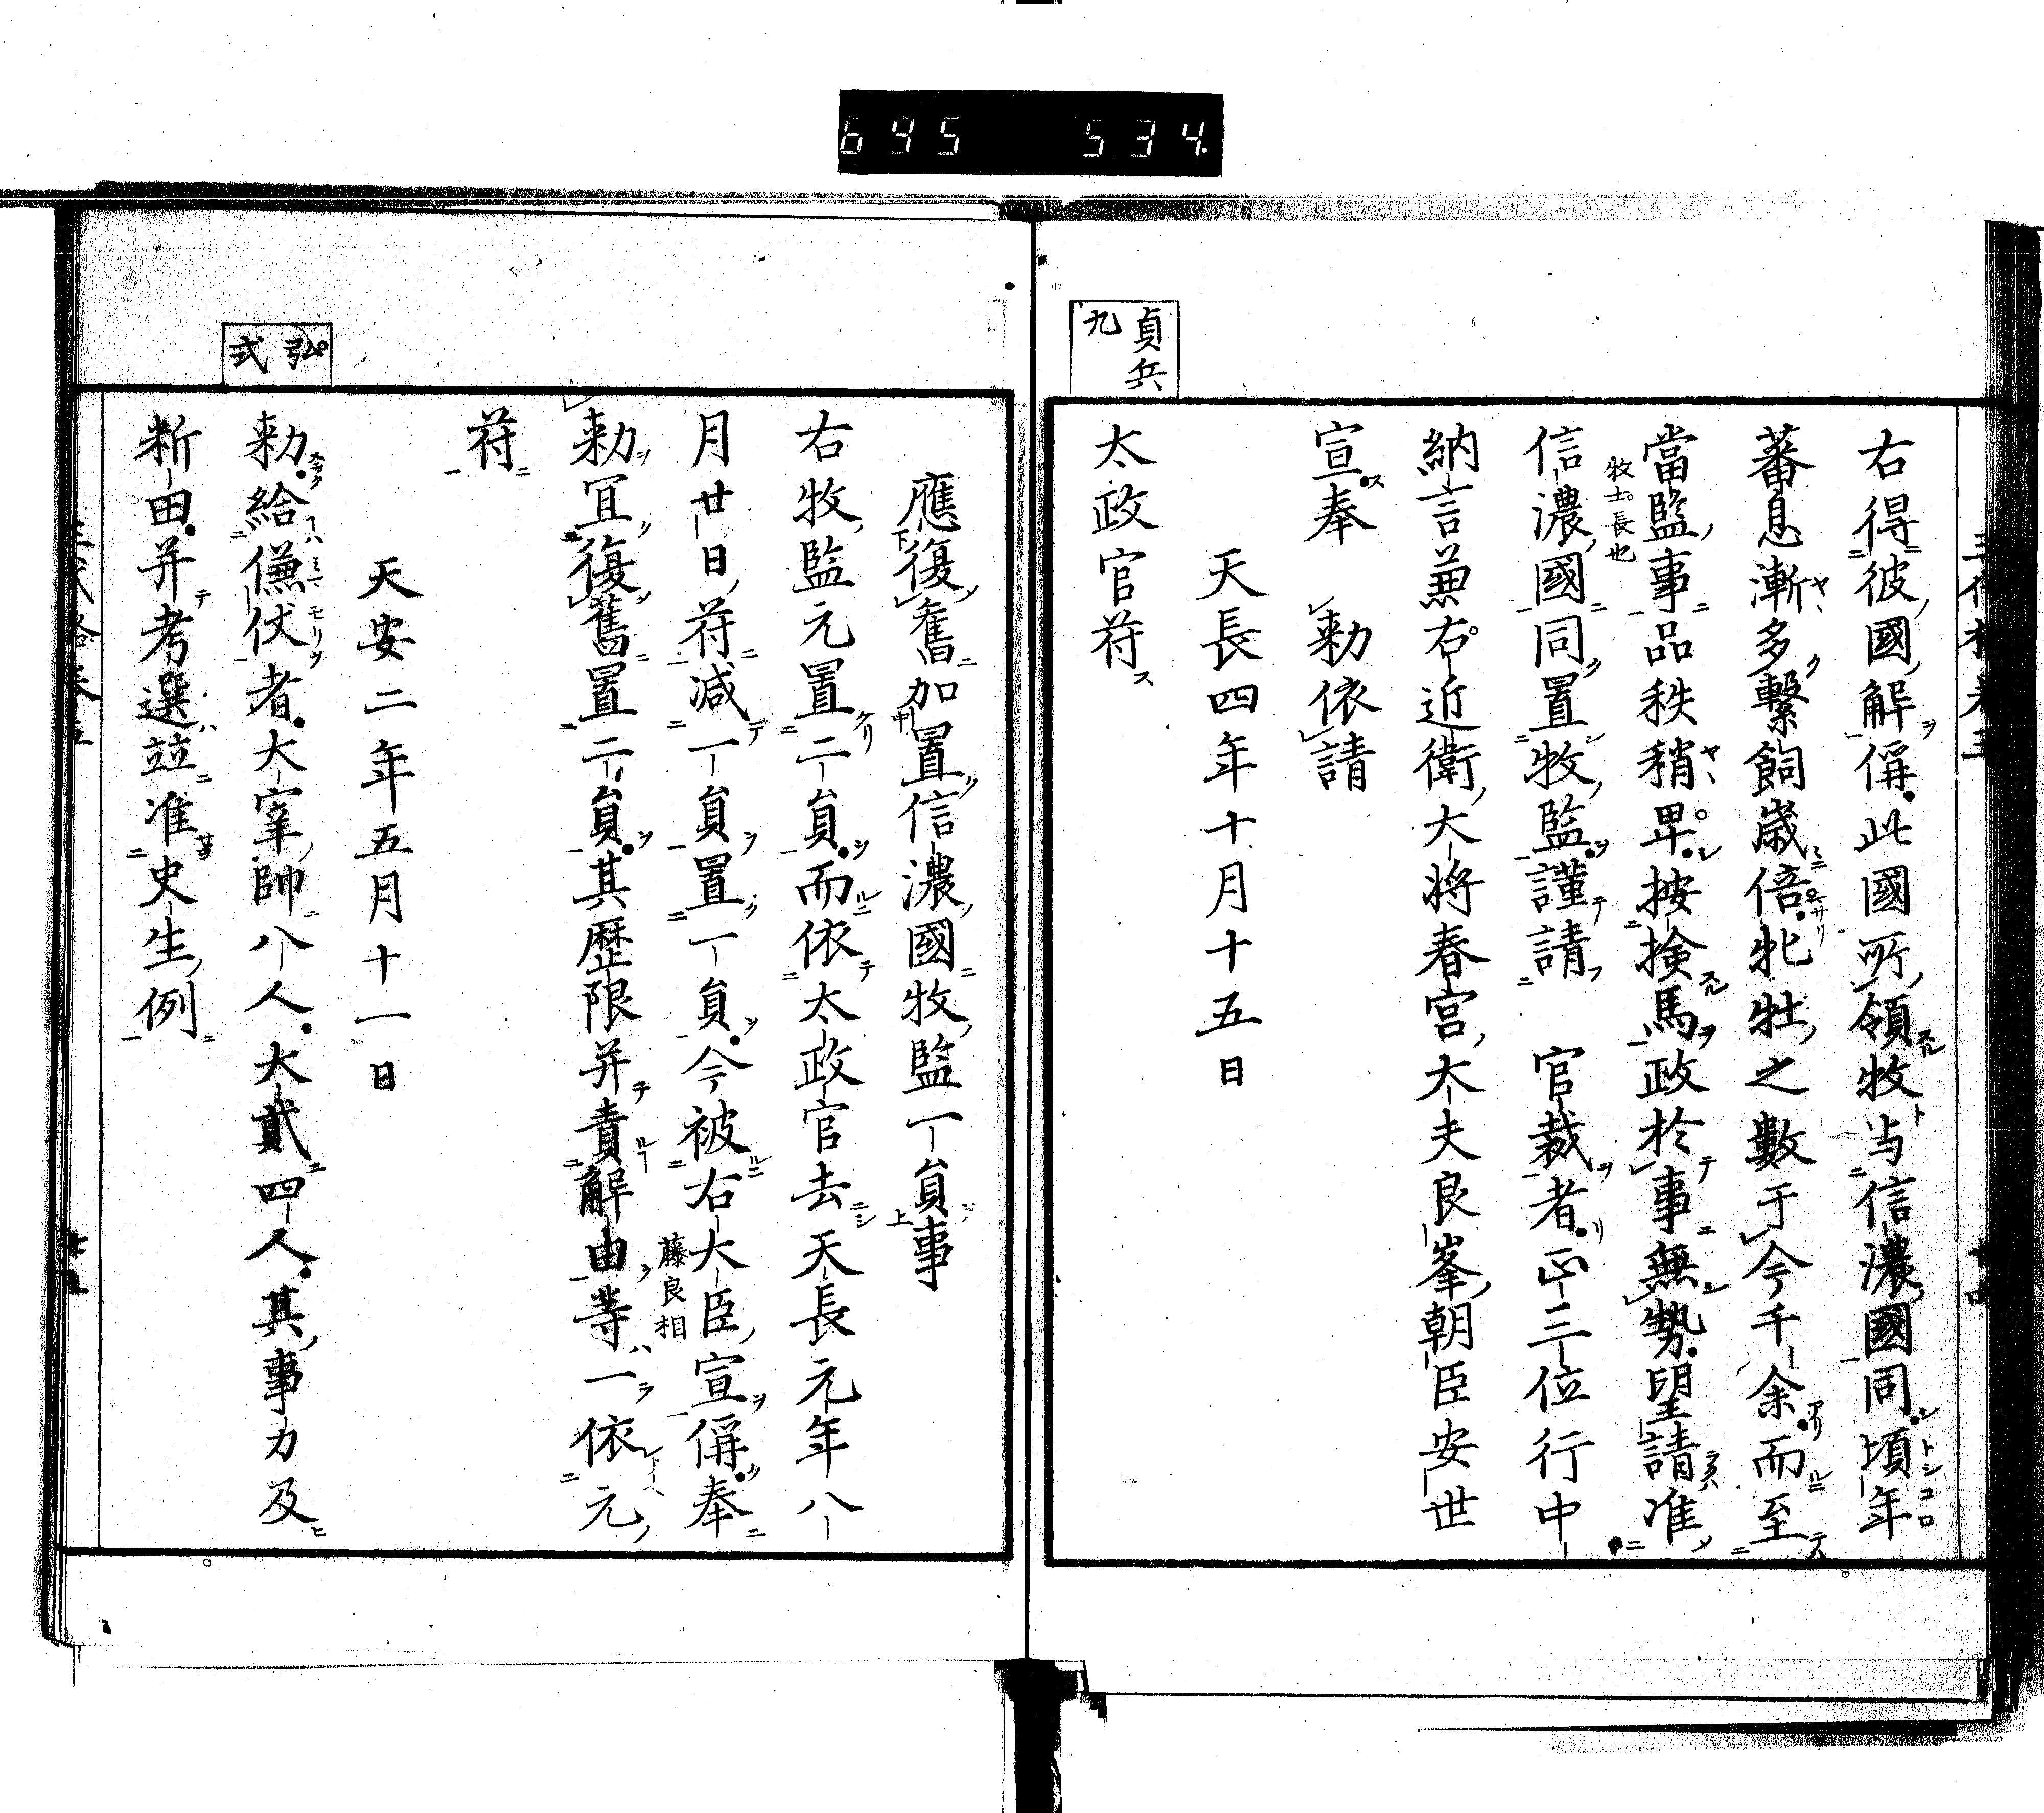 645 534
右得彼國解偁此國所領牧与信濃國同頃年
蕃息漸多繫飼歳倍牝牡之數于今千余而至
當監事品秩稍卑按撿馬政於事無勢望請准
牧士長也
信濃國同置牧監謹請 官裁者正三位行中
納言兼右近衛大将春宮大夫良峯朝臣安世
宣奉 勅依請
天長四年十月十五日
貞兵
九
太政官符
應復舊加置信濃國牧監一員事
右牧監元置二員而依太政官去天長元年八
月廿日符減一員置一員今被右大臣宣偁奉
藤良相
勅宜復舊置二員其歴限并責解由等一依元
符
天安二年五月十一日
弘
式
勅給傔仗者大宰帥八人大貳四人其事力及
析田并考選竝准史生例